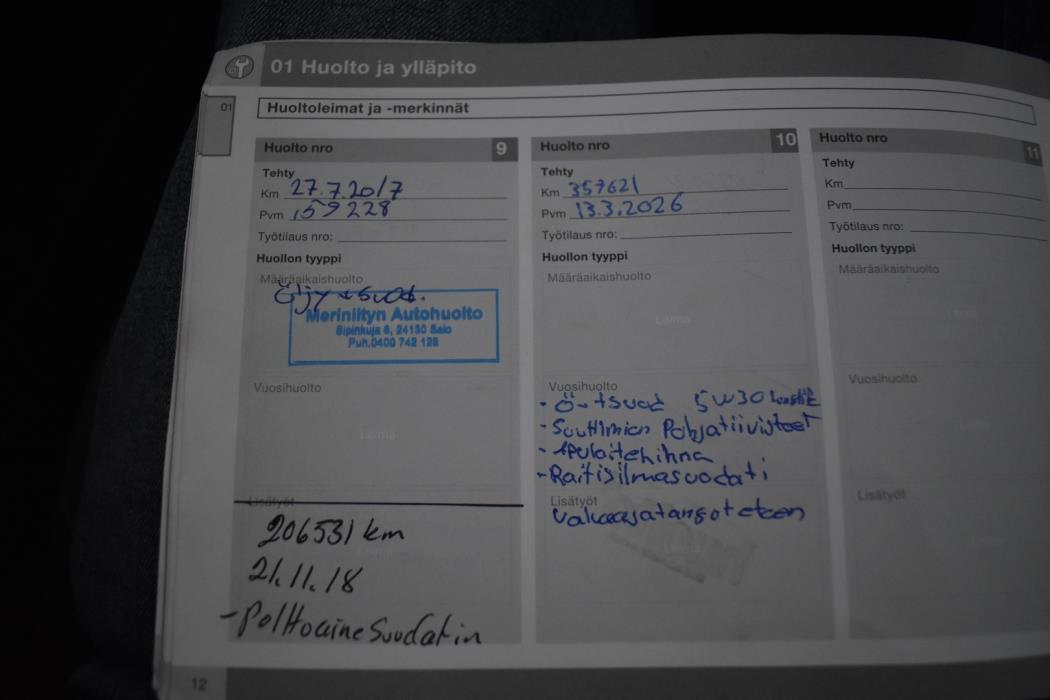 01 Huolto ja ylläpito
01
Huoltoleimat ja -merkinnät
Huolto nro 9
Tehty
Km 27.7.2017
Pvm 159228
Työtilaus nro:
Huollon tyyppi
Määräaikaishuolto
Öljy + suod.
Meriniityn Autohuolto
Sipinkuja 6, 24130 Salo
Puh.0400 742 128
Vuosihuolto
Leima
Lisätyöt
206531 km
Leima
21.11.18
-Polttoainesuodatin
12
Huolto nro 10
Tehty
Km 357621
Pvm 13.3.2026
Työtilaus nro:
Huollon tyyppi
Määräaikaishuolto
Leima
Vuosihuolto
- Ö+suod 5W30
- Suuttimien Pohjatiivisteet
- Apulaitehihna
- Raitisilmasuodati
Lisätyöt
Vakaajatangot eteen
Leima
Huolto nro 11
Tehty
Km
Pvm
Työtilaus nro:
Huollon tyyppi
Määräaikaishuolto
Leima
Vuosihuolto
Leima
Lisätyöt
Leima